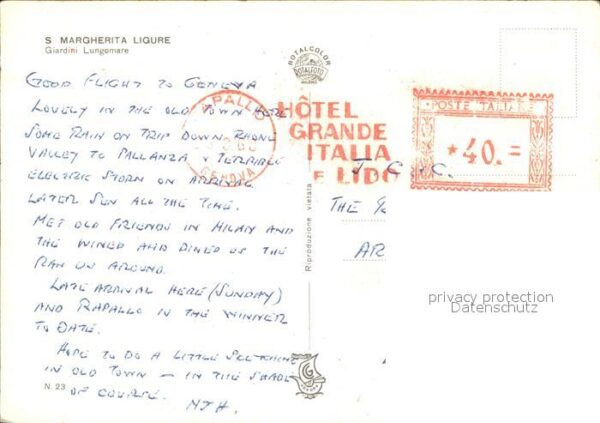 S MARGHERITA LIGURE
Giardini Lungomare
GOOD FLIGHT TO GENEVA
LOVELY IN THE OLD TOWN HERE
SOME RAIN ON TRIP DOWN RHONE
VALLEY TO PALLANZA & TERRIBLE
ELECTRIC STORM ON ARRIVAL
LATER SUN ALL THE TIME.
MET OLD FRIENDS IN MILAN AND
THE WINED AND DINED US THE
RAN US AROUND.
LATE ARRIVAL HERE (SUNDAY)
AND RAPALLO IN THE WINNER
TO DATE.
HOPE TO DO A LITTLE SKETCHING
IN OLD TOWN — IN THE SHADE
OF COURSE. NJH.
N. 23
ROTALCOLOR
ROTALFOTO
MILANO
Riproduzione vietata
RAPALLO
GENOVA
HÔTEL
GRANDE
ITALIA
E LIDO
POSTE ITALIANE
* 40. =
J. C. C.
THE
AR
privacy protection
Datenschutz